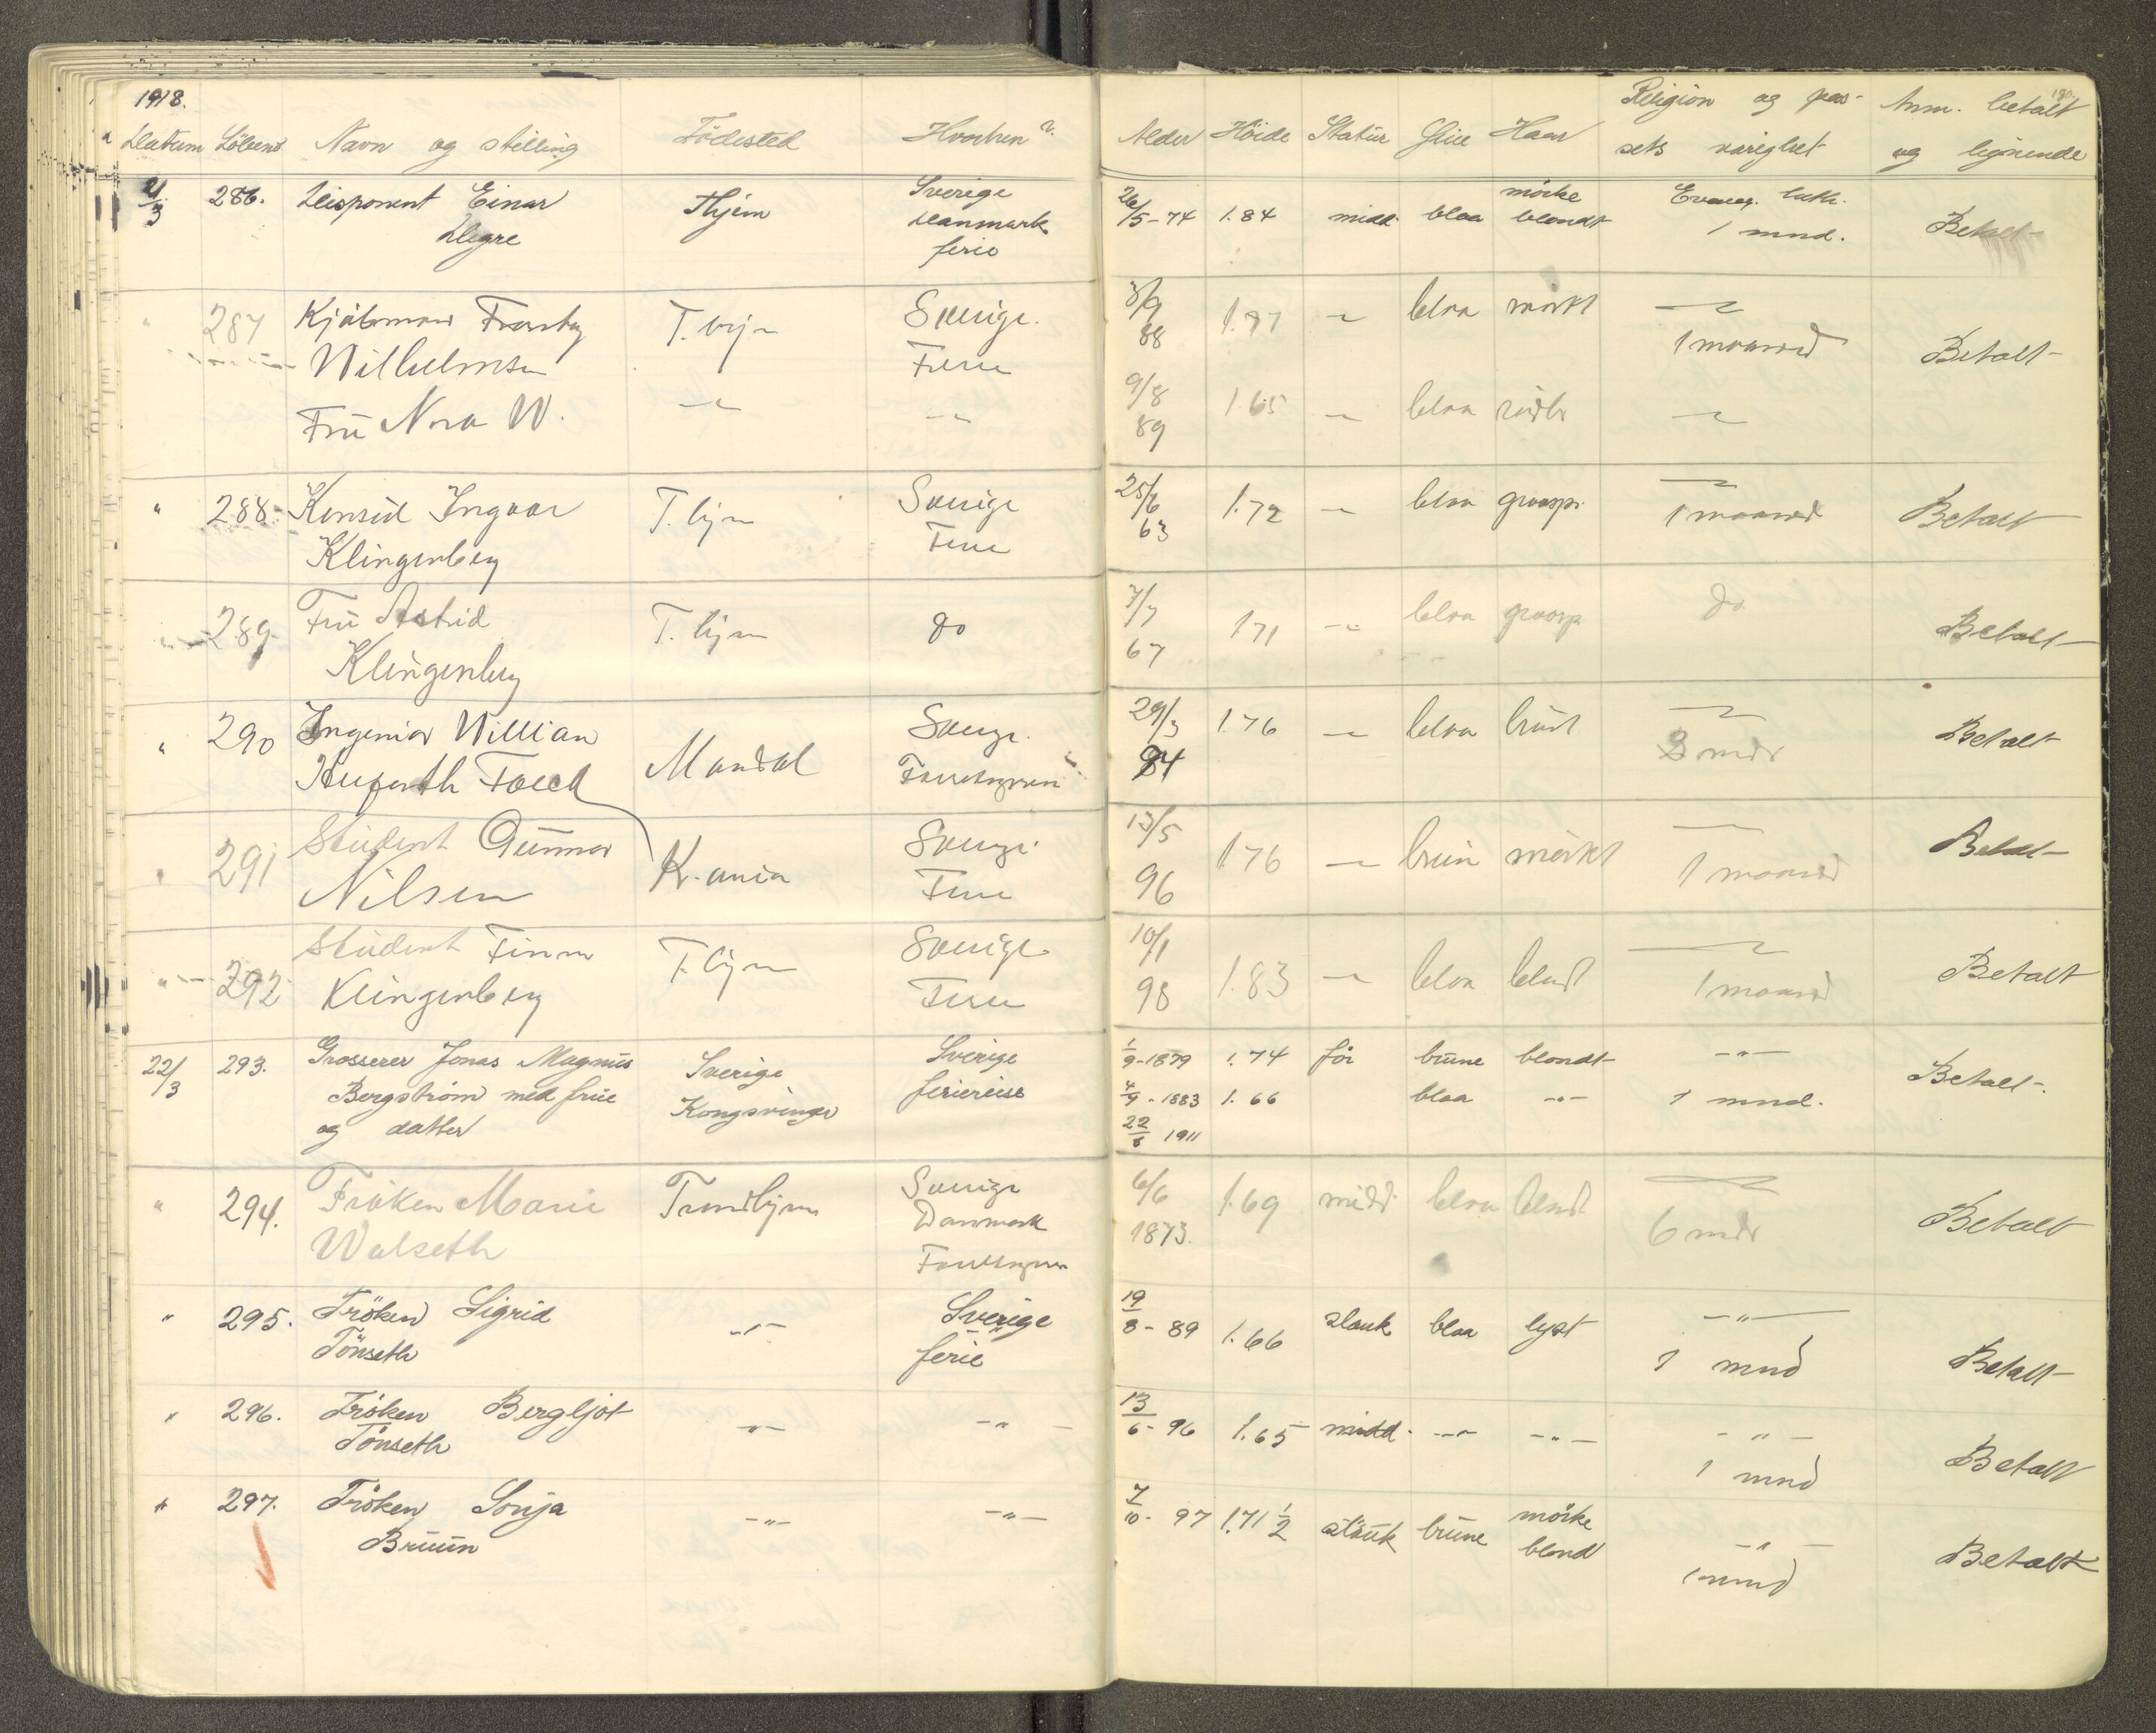 1918.
Datum Löbenr Navn og stilling Födested Hvorhen?
Alder Höide Statur Öine Haar Religion og pas- Anm. betalt
sets varighet og lignende
21/3 286. Disponent Einar Thjem Sverige 26/5-74 1.84 midd. blaa mörke Evang. luth. Betalt
Danmark blondt 1 mnd.
ferie
" 287 Kjöbmand T.hjm Sverige. 3/9 1.77 blaa mörkt Betalt
Wilhelmsen Ferie 88 1 maaned
Frü Nora W. 9/8 1.65 blaa
89
" 288. Konsul Ingvar T.hjm Sverige 25/6 1.72 blaa graaspr. Betalt
Klingenberg Ferie 63 1 maaned
" 289. Frü Astrid T.hjm do 7/7 1.71 blaa graaspr do Betalt
Klingenberg 67
" 290 Ingeniør William Mandal Sverige 29/3 1.76 blaa brünt Betalt
Forretningsreise 84 3 mdr
" 291 Stüdent Günnar Kr.ania Sverige 13/5 1.76 brün mörkt Betalt
Nilsen Ferie 96 1 maaned
" 292 Stüdent Finn T.hjm Sverige 10/1 1.83 blaa blondt Betalt
Klingenberg Ferie 98 1 maaned
22/3 293. Grosserer Jonas Magnüs Sverige Sverige 1/9-1879 1.74 för brüne blondt -"- Betalt.
Bergström med früe Kongsvinger feriereise 4/9-1883 1.66 blaa -"- 1 mnd.
og datter 22/6 1911
" 294. Fröken Marie Trondhjem Sverige 6/6 1.69 midd. blaa blondt Betalt
Walseth Danmark 1873. 6 mdr
Forretningsreise
" 295. Fröken Sigrid -"- Sverige 19/8-89 1.66 slank blaa lyst -"- Betalt
Tönseth ferie 1 mnd
" 296. Fröken Bergljot -"- -"- 13/6-96 1.65 midd. -"- -"- -"- Betalt
Tönseth 1 mnd
" 297. Fröken Sonja -"- -"- 7/10-97 1.71½ brüne mörke -"- Betalt
Brüün blond 1 mnd